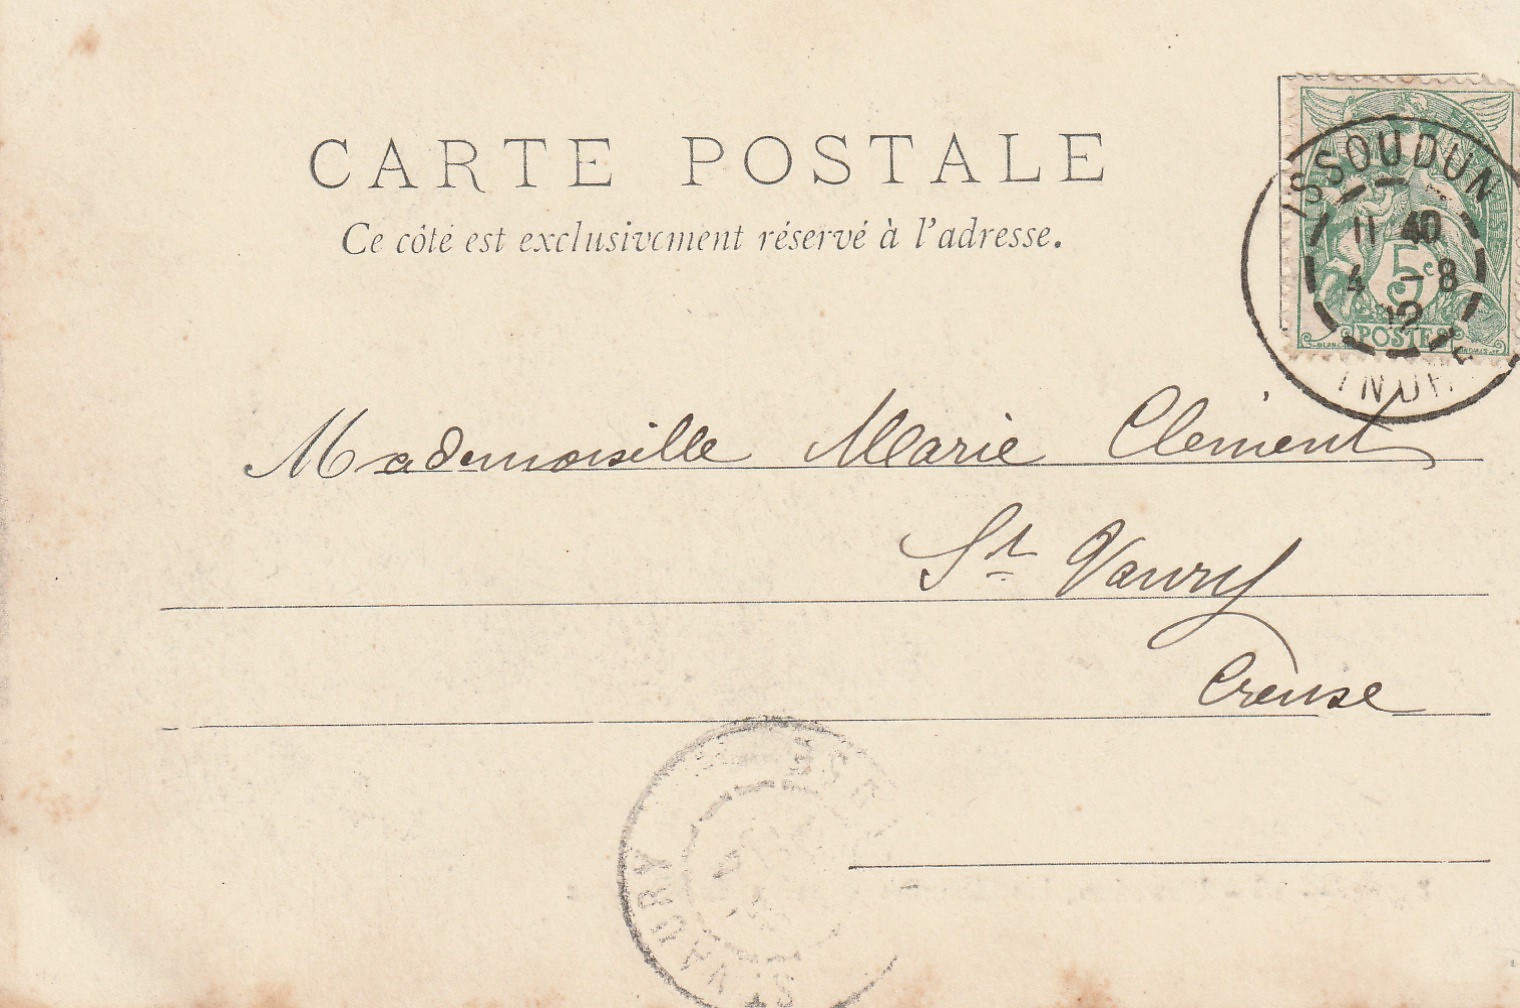 CARTE POSTALE
Ce côté est exclusivement réservé à l'adresse.
ISSOUDUN
11 40
4 -8
02
5c
POSTES
Mademoiselle Marie Clément
St Vaury
Creuse
St VAURY